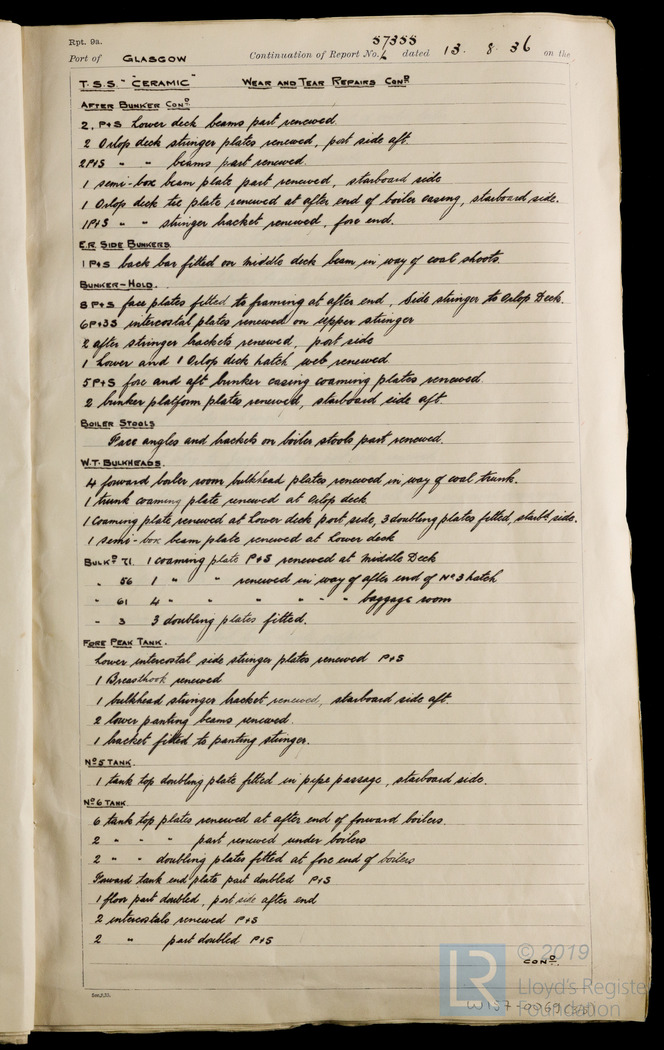 Rpt. 9a.
57355
Port of GLASGOW Continuation of Report No. dated 13. 8. 36 on the
T.S.S. "CERAMIC" WEAR AND TEAR REPAIRS COND
AFTER BUNKER COND
2. P+S Lower deck beams part renewed
2 Orlop deck stringer plates renewed, port side aft.
2P+S " " beams part renewed.
1 semi-box beam plate part renewed, starboard side
1 Orlop deck tie plate renewed at after end of boiler casing, starboard side.
1P+S " " stringer bracket renewed, fore end.
E.R. SIDE BUNKERS
1 P+S back bar fitted on middle deck beam in way of coal shoots.
BUNKER-HOLD.
8 P+S face plates fitted to framing at after end, side stringer to Orlop Deck.
6P+3S intercostal plates renewed on upper stringer
2 after stringer brackets renewed, port side
1 Lower and 1 Orlop deck hatch web renewed
5P+S fore and aft bunker casing coaming plates renewed
2 bunker platform plates renewed, starboard side aft.
BOILER STOOLS
Face angles and brackets on boiler stools part renewed.
W.T. BULKHEADS.
4 forward boiler room bulkhead plates renewed in way of coal trunk.
1 trunk coaming plate renewed at Orlop deck
1 coaming plate renewed at Lower deck port side, 3 doubling plates fitted, starbd side.
1 semi-box beam plate renewed at Lower deck
BULKD 71. 1 coaming plate P+S renewed at Middle Deck
" 56 1 " " renewed in way of after end of No 3 hatch
" 61 4 " " " " " " baggage room
" 3 3 doubling plates fitted.
FORE PEAK TANK.
Lower intercostal side stringer plates renewed P+S
1 Breasthook renewed
1 bulkhead stringer bracket renewed, starboard side aft.
2 lower panting beams renewed.
1 bracket fitted to panting stringer.
No 5 TANK.
1 tank top doubling plate fitted in pipe passage, starboard side.
No 6 TANK
6 tank top plates renewed at after end of forward boilers.
2 " " " part renewed under boilers
2 " " doubling plates fitted at fore end of boilers
Forward tank end plate part doubled P+S
1 floor part doubled, port side after end
2 intercostals renewed P+S
2 " part doubled P+S
COND.
LR © 2019
Lloyd's Register
Foundation